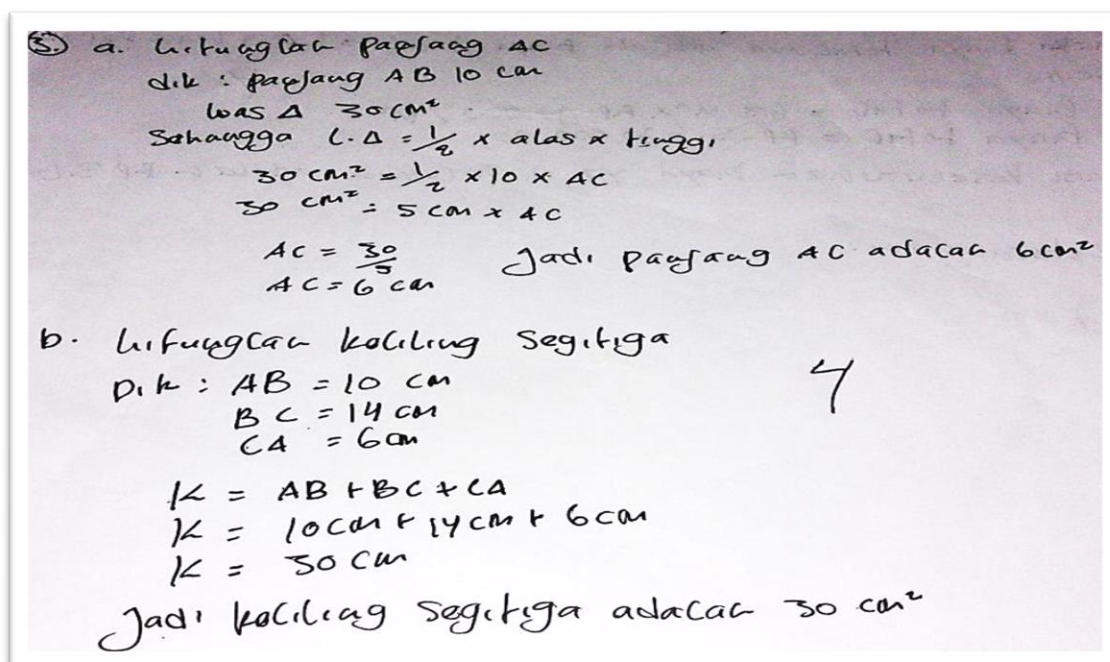 3. a. hitunglah panjang AC
dik : panjang AB 10 cm
luas Δ 30 cm²
Sehingga L.Δ = 1/2 x alas x tinggi
30 cm² = 1/2 x 10 x AC
30 cm² = 5 cm x AC
AC = 30/5 Jadi panjang AC adalah 6 cm²
AC = 6 cm
b. hitunglah keliling segitiga
Dik : AB = 10 cm
BC = 14 cm
CA = 6 cm
4
K = AB + BC + CA
K = 10 cm + 14 cm + 6 cm
K = 30 cm
Jadi keliling segitiga adalah 30 cm²